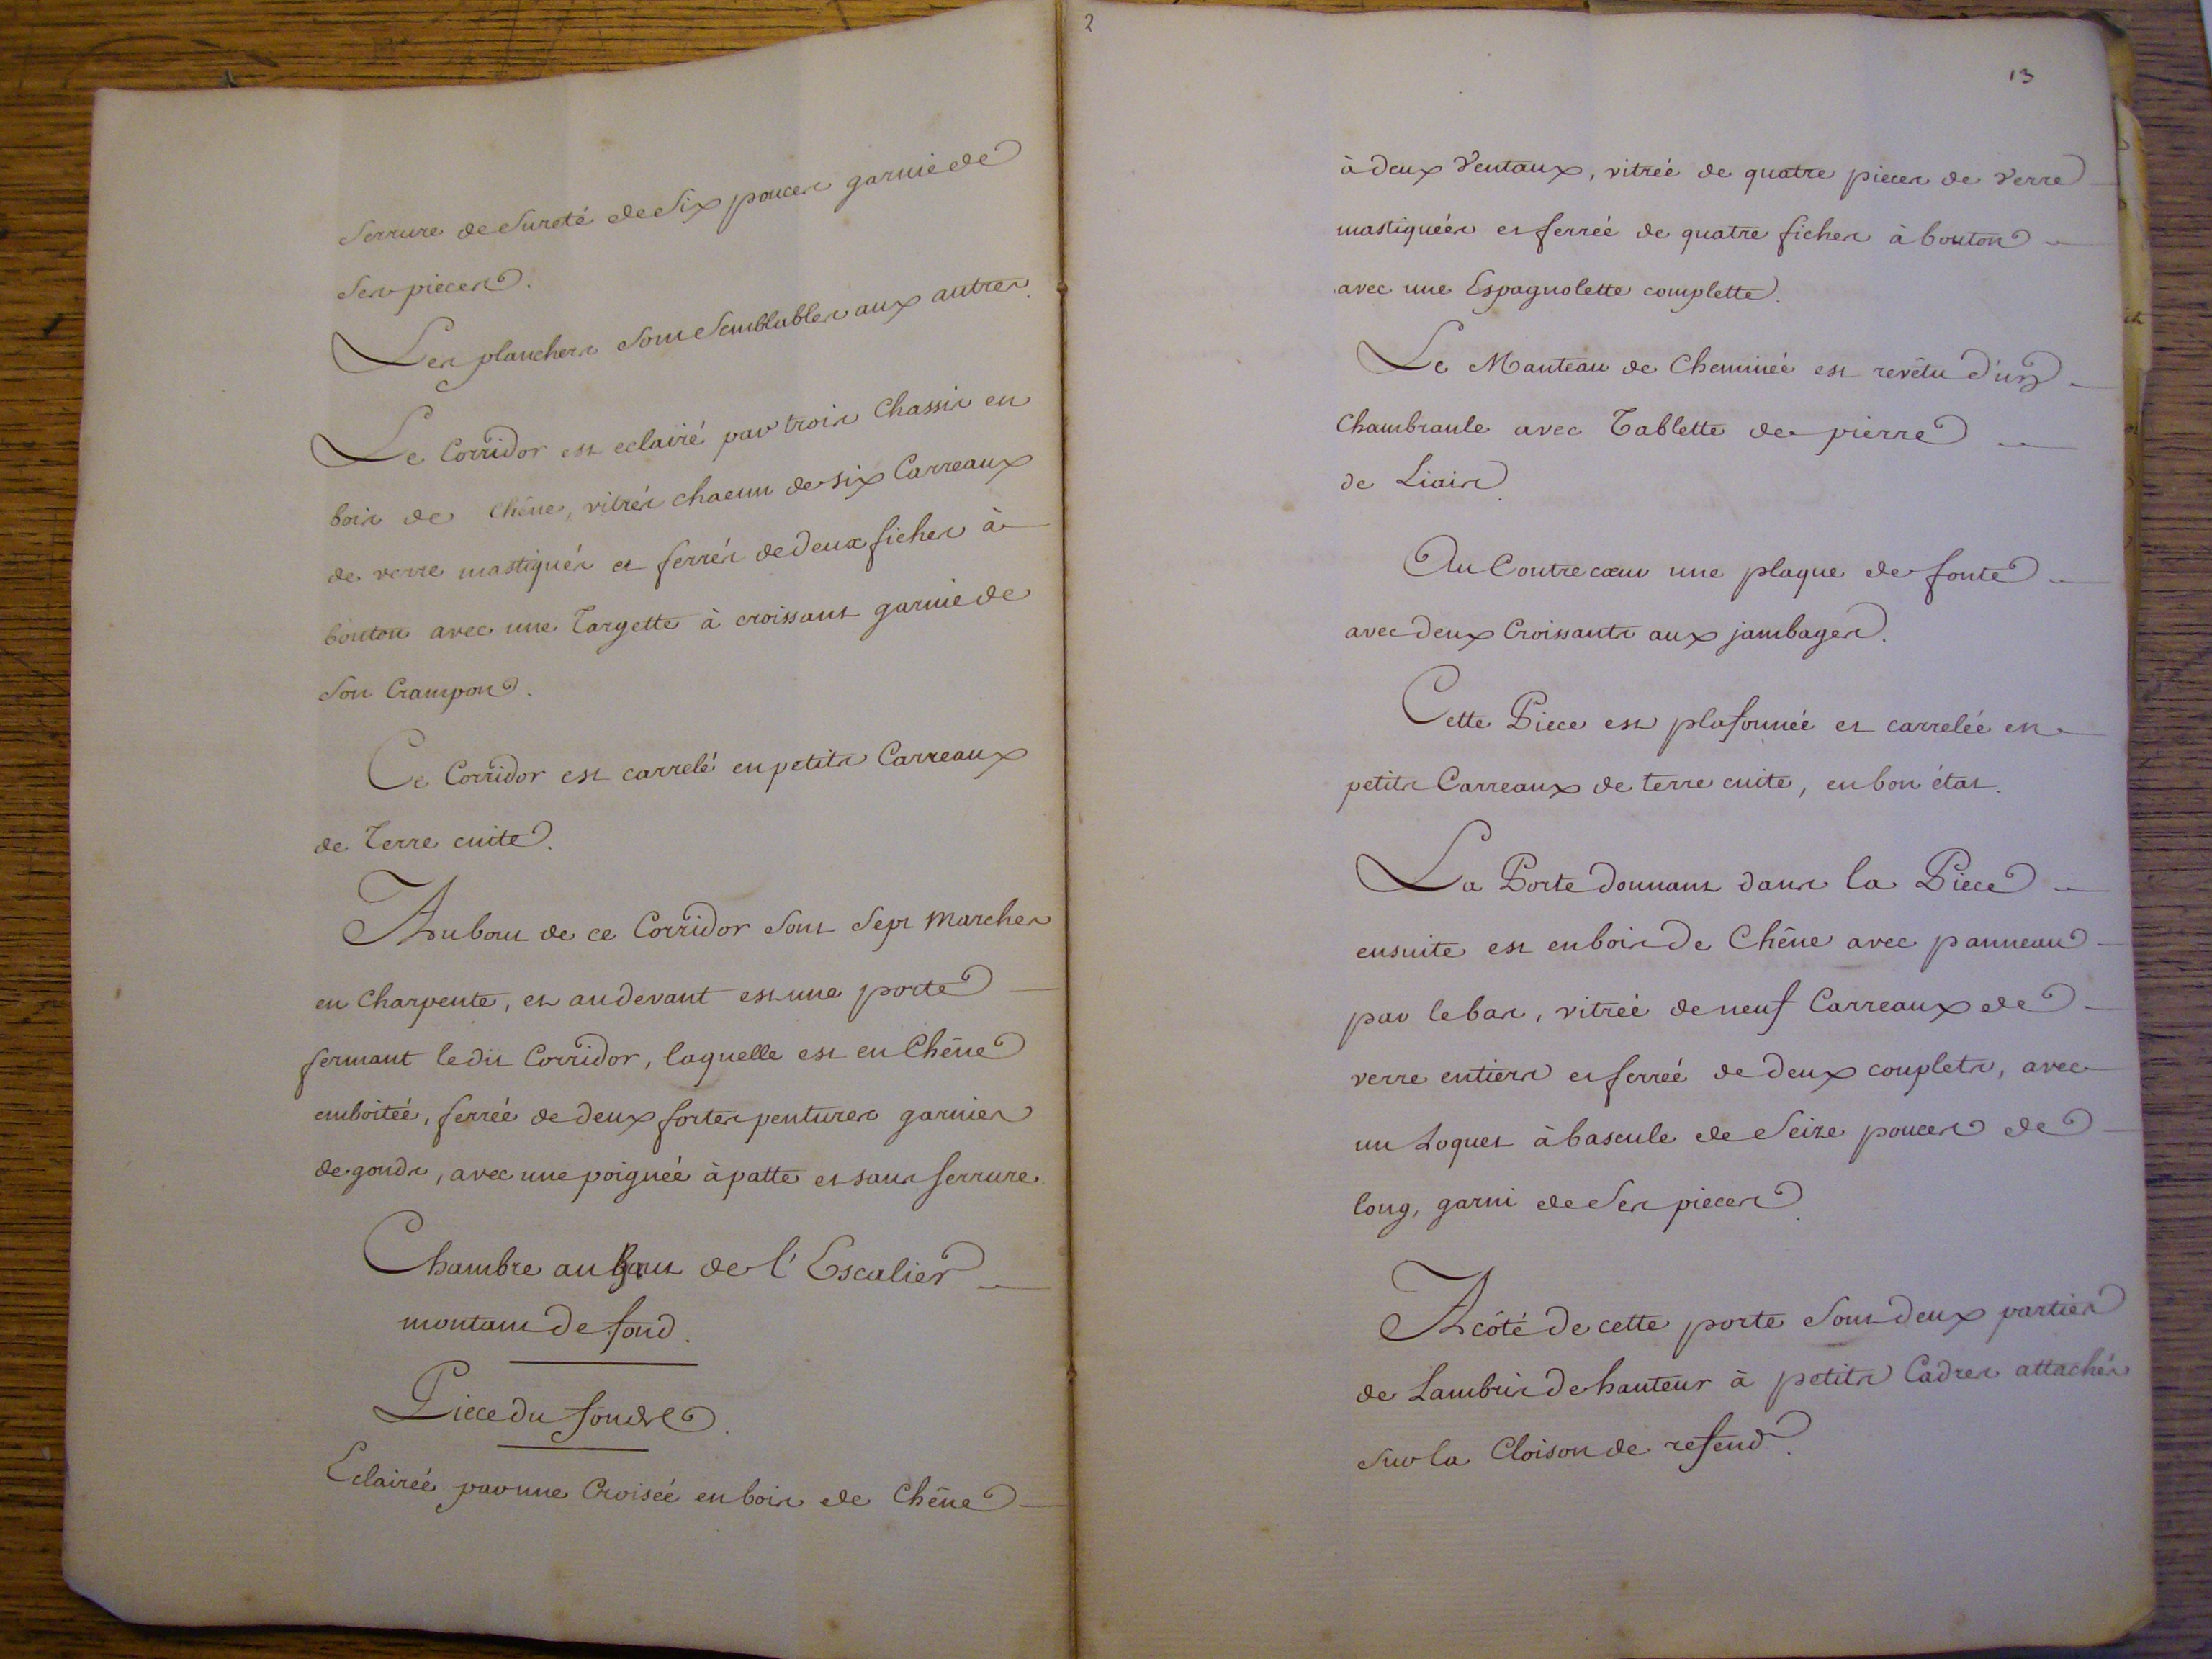 Serrure de Sureté de Six pouces garnie de
Ses pieces.
Les planchers Sont Semblables aux autres.
Le Corridor est eclairé par trois Chassis en
bois de Chêne, vitrés chacun de six Carreaux
de verre mastiqués et ferrés de deux fiches à
bouton avec une Targette à croissant garnie de
Son Crampon.
Ce Corridor est carrelé en petits Carreaux
de Terre cuite.
Au bout de ce Corridor Sont Sept Marches
en Charpente, et au devant est une porte
fermant le dit Corridor, laquelle est en Chêne
emboitée, ferrée de deux fortes pentures garnies
de gonds, avec une poignée à patte et sans Serrure.
Chambre au Bout de l'Escalier
montant de fond.
Piece du fond.
Eclairée par une Croisée en bois de Chêne
2
13
à deux Ventaux, vitrée de quatre pieces de Verre
mastiquées et ferrée de quatre fiches à bouton
avec une Espagnolette complette.
Le Manteau de Cheminée est revêtu d'un
Chambranle avec Tablette de pierre
de Liais.
Au Contrecœur une plaque de fonte
avec deux Croissants aux jambages.
Cette Piece est plafonnée et carrelée en
petits Carreaux de terre cuite, en bon état.
La Porte donnant dans la Piece
ensuite est en bois de Chêne avec panneau
par le bas, vitrée de neuf Carreaux de
verre entiers et ferrée de deux couplets, avec
un Loquet à bascule de Seize pouces de
long, garni de Ses pieces.
A côté de cette porte Sont deux parties
de Lambris de hauteur à petits Cadres attachés
Sur la Cloison de refend.